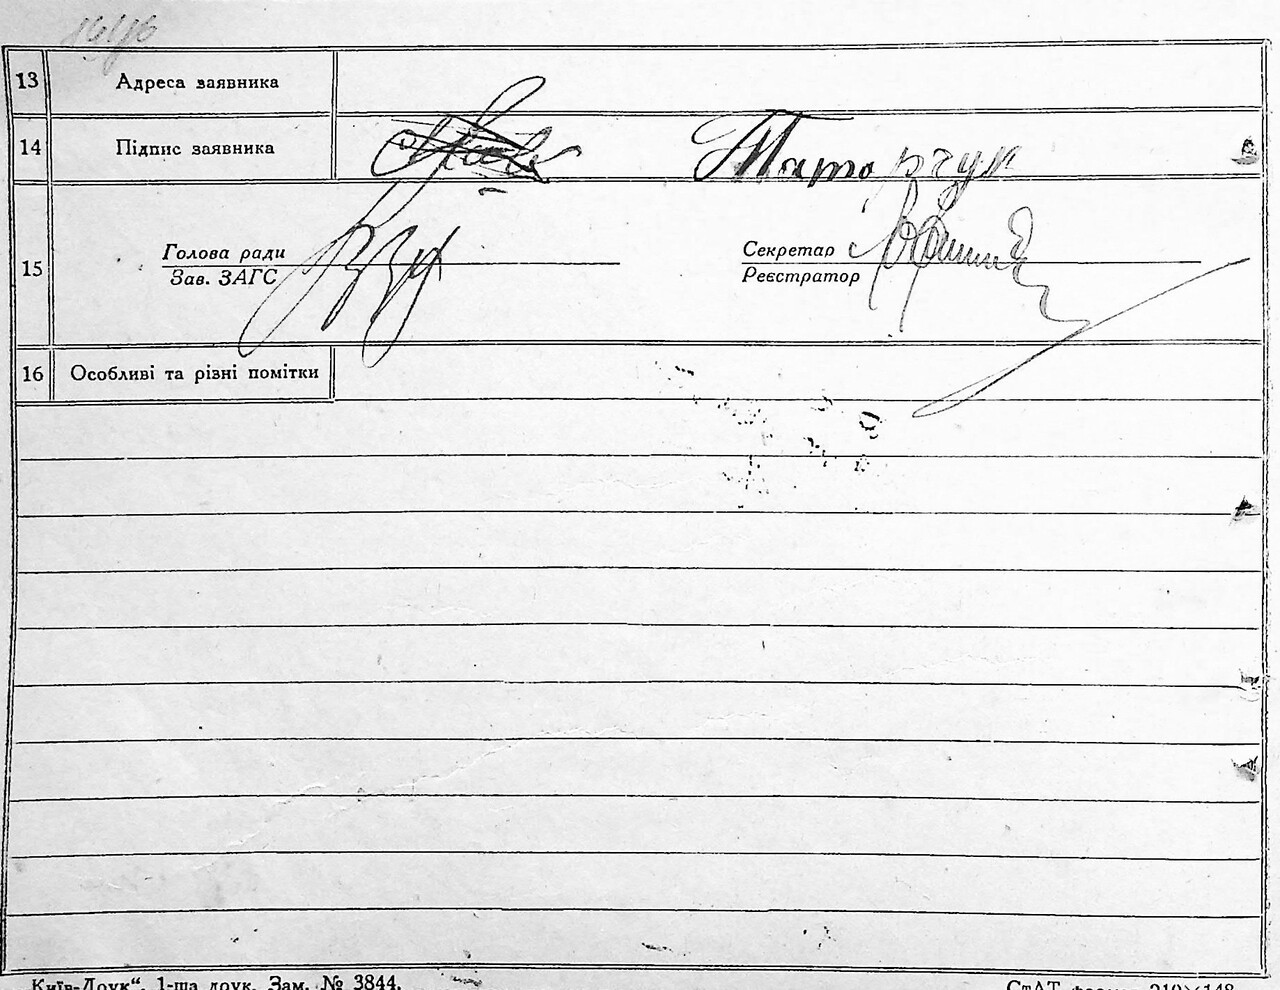 13 Адреса заявника
14 Підпис заявника Татарчук
Голова ради Секретар
15
Зав. ЗАГС Реєстратор
16 Особливі та різні помітки
Київ-Друк“. 1-ша друк. Зам. № 3844. СтАТ формат 210×148